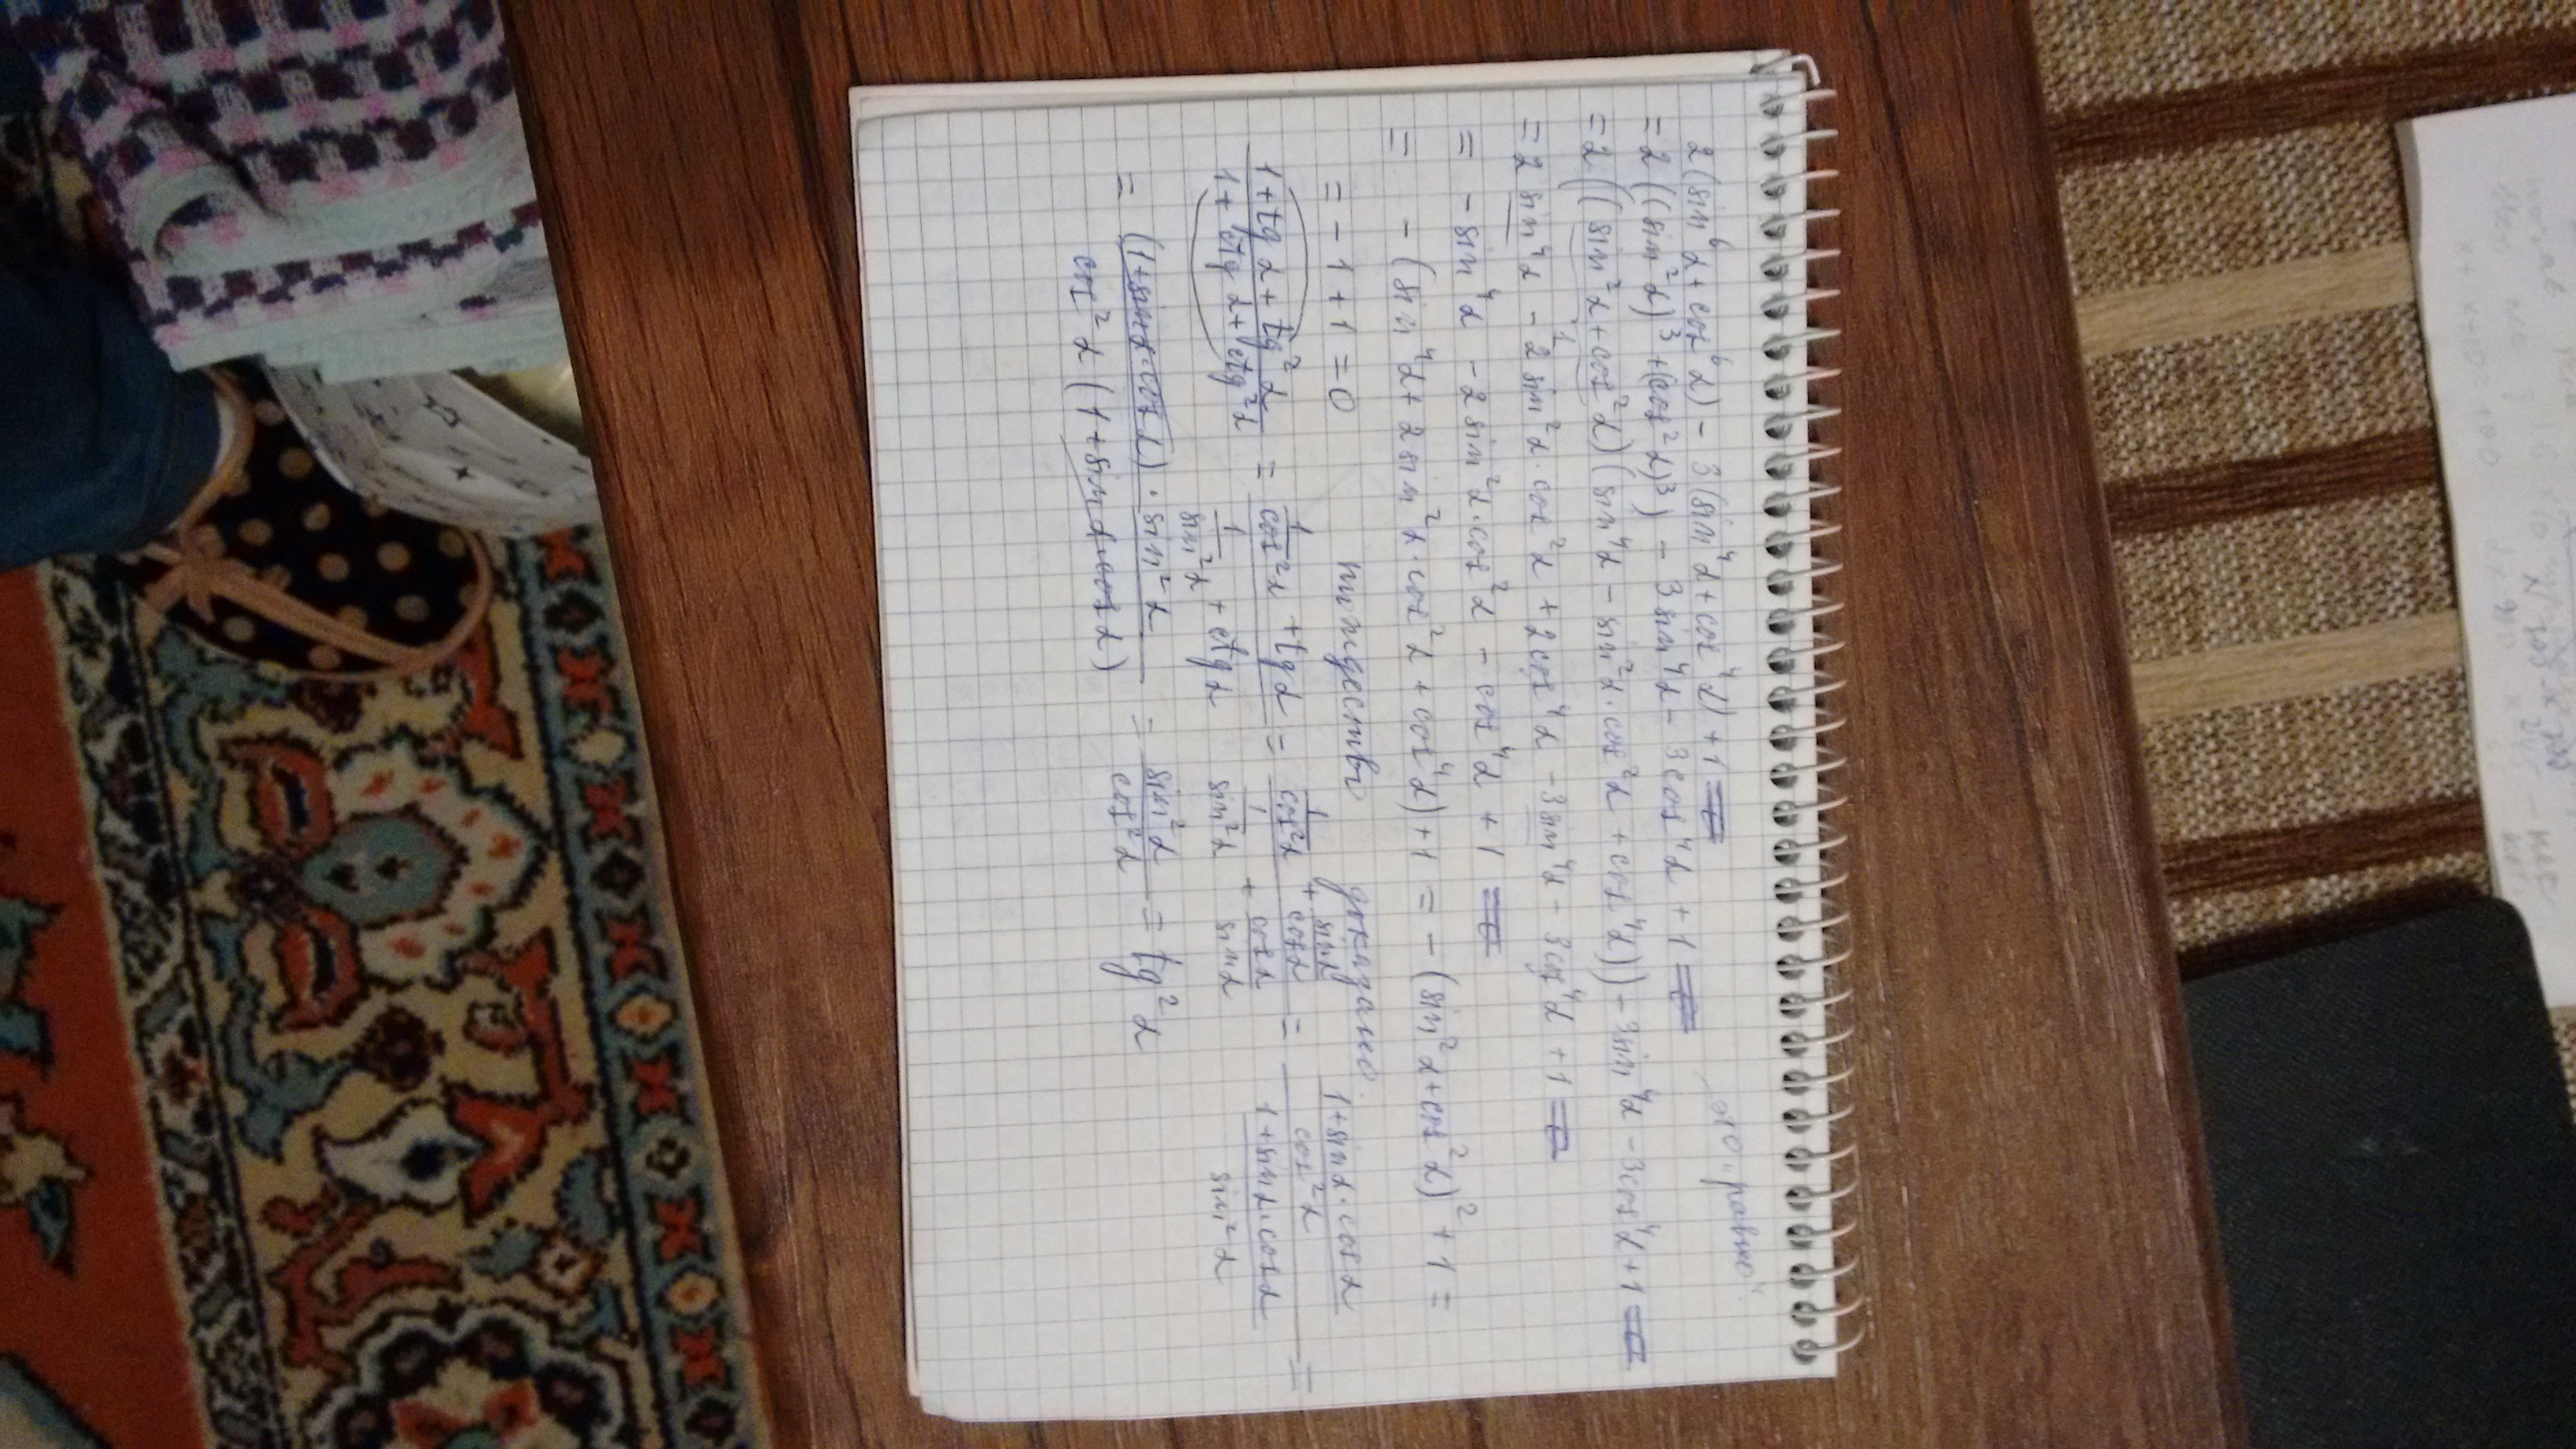 2(sin⁶α+cos⁶α) - 3(sin⁴α+cos⁴α)+1 =
"равно"
= 2((sin²α)³+(cos²α)³) - 3sin⁴α - 3cos⁴α + 1 =
= 2((sin²α+cos²α)(sin⁴α - sin²α·cos²α + cos⁴α)) - 3sin⁴α - 3cos⁴α + 1 =
1
= 2 sin⁴α - 2 sin²α·cos²α + 2cos⁴α - 3sin⁴α - 3cos⁴α + 1 =
= - sin⁴α - 2 sin²α·cos²α - cos⁴α + 1 =
= - (sin⁴α + 2 sin²α·cos²α + cos⁴α)+1 = - (sin²α+cos²α)² + 1 =
= - 1 + 1 = 0 тождество доказано.
(1+tgα+tg²α)/(1+ctgα+ctg²α) = (1/cos²α + tgα)/(1/sin²α + ctgα) = (1/cos²α + sinα/cosα)/(1/sin²α + cosα/sinα) = ((1+sinα·cosα)/cos²α)/((1+sinα·cosα)/sin²α) =
= ((1+sinα·cosα)·sin²α)/(cos²α(1+sinα·cosα)) = sin²α/cos²α = tg²α